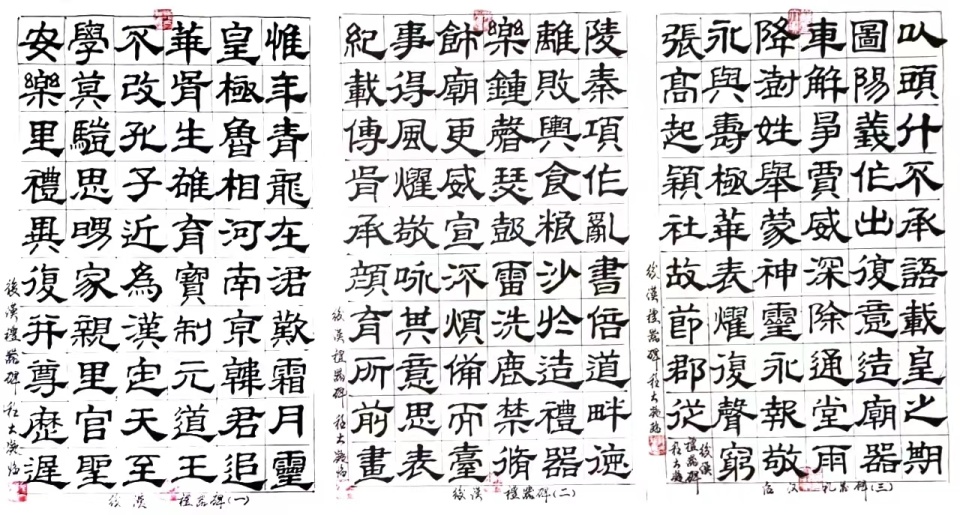 惟年青龍在涒歎霜月靈
皇極魯相河南京韓君追
華胥生雒育寶制元道王
不改孔子近為漢定天至
學莫驥思嘆家親里官聖
安樂里禮異復并尊歷遅
後漢禮器碑
後漢 禮器碑(一)
陵秦項作亂書倍道畔德
離敗輿食粮沙於造禮器
樂鍾磬瑟鼓雷洗鹿禁脩
飾廟更威宣汙煩備而臺
事得風燿敬咏其意思表
紀載傳肯承顔育所前畫
後漢禮器碑
後漢 禮器碑(二)
㠯頭什不承語載皇之期
圖陽義作出復意造廟器
車解爭賈威深除通堂雨
降澍姓舉蒙神靈永報敬
永與壽極華表燿復聲窮
張高起穎社故節郡從
後漢禮器碑
後漢禮器碑
后汉 礼器碑(三)